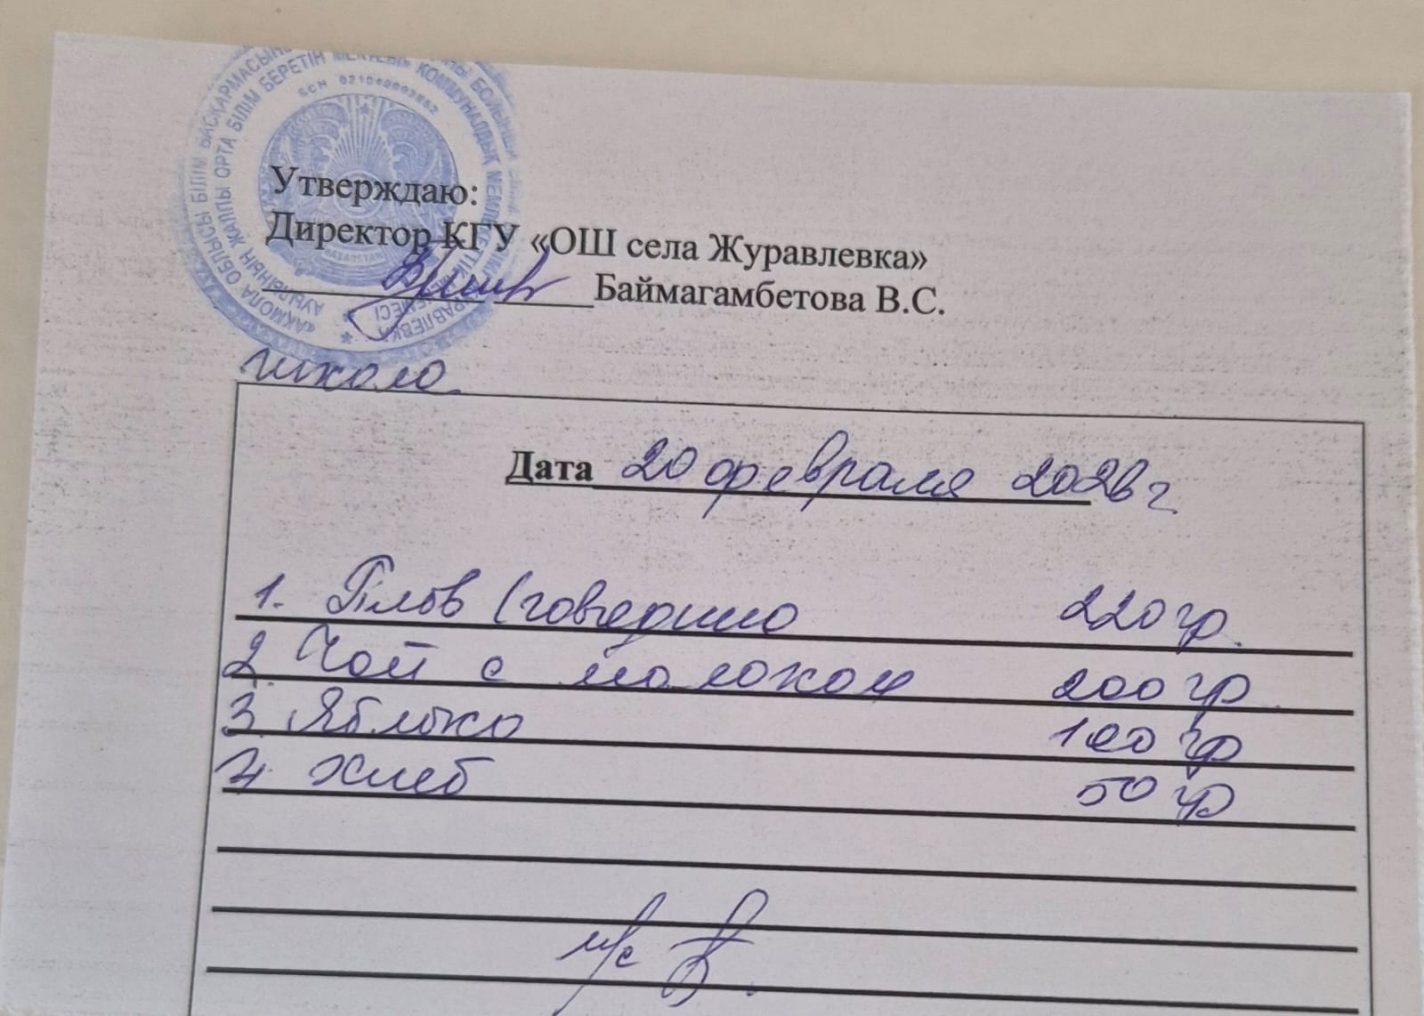 БСН 021040003862
Утверждаю:
Директор КГУ «ОШ села Журавлевка»
Баймагамбетова В.С.
школа
Дата 20 февраля 2026 г
1. Плов (говядина 220 гр.
2. Чай с молоком 200 гр
3. Яблоко 100 гр
4. хлеб 50 гр
м/с